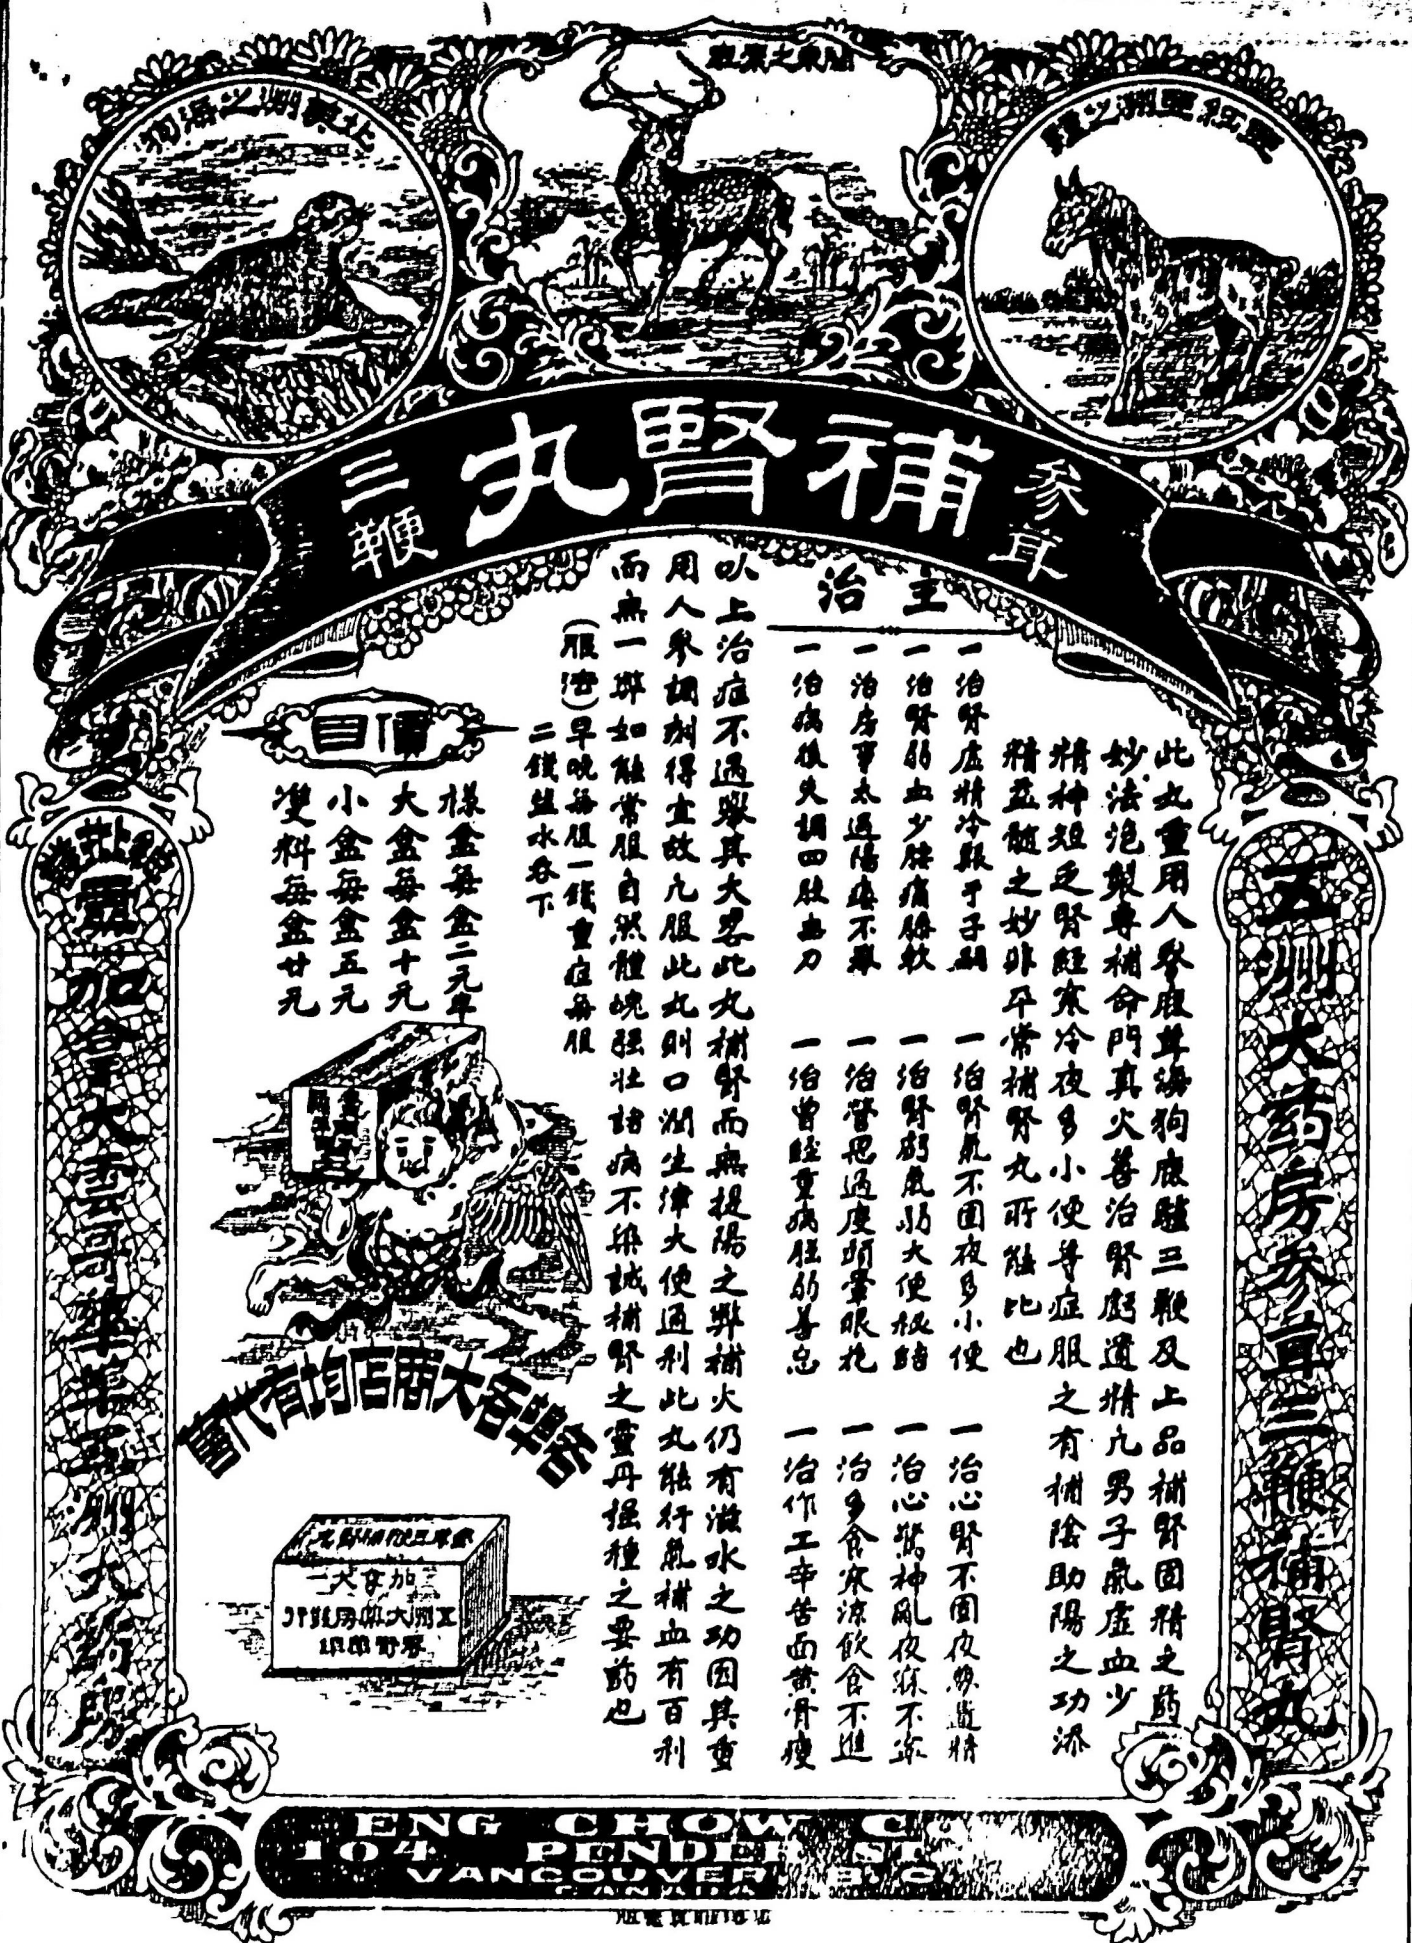 北美洲之海狗
關東之鹿
歐亞洲之驢
參茸 補腎丸 三鞭
五洲大药房參茸三鞭補腎丸
此丸重用人參鹿茸海狗鹿驢三鞭及上品補腎固精之药
妙法泡製專補命門真火善治腎虧遺精凢男子氣虛血少
精神短乏腎經寒冷夜多小便等症服之有補陰助陽之功添
精益髓之妙非平常補腎丸所能比也
主治
一治腎虛精冷艱于子嗣
一治腎氣不固夜多小便
一治心腎不固夜夢遺精
一治腎弱血少腰痛腳軟
一治腎虧氣弱大便秘結
一治心驚神亂夜寐不寧
一治房事太過陽痿不舉
一治營思過度頭暈眼花
一治多食寒涼飲食不進
一治病後失調四肢無力
一治曾經重病胆弱善忘
一治作工辛苦面黄骨瘦
以上治症不過舉其大畧此丸補腎而無提陽之弊補火仍有滋水之功因其重
用人參調劑得宜故凢服此丸則口潤生津大便通利此丸能行氣補血有百利
而無一弊如能常服自然體魄强壮諸病不染誠補腎之靈丹强種之要药也
(服法)早晚每服一錢重症每服
二錢塩水吞下
價目
樣盒每盒二元半
大盒每盒十元
小盒每盒五元
雙料每盒廿元
各埠各大商店均有代售
參茸三鞭補腎丸
加拿大
五洲大藥房發行
加拿大雲哥華華五洲大药房
ENG CHOW C
104 PENDER ST
VANCOUVER B.C
CANADA